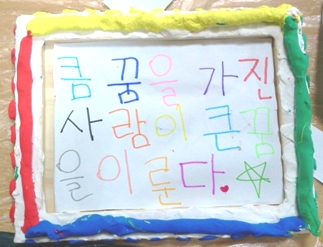 큼 꿈을 가진
사람이 큰 꿈
을 이룬다.